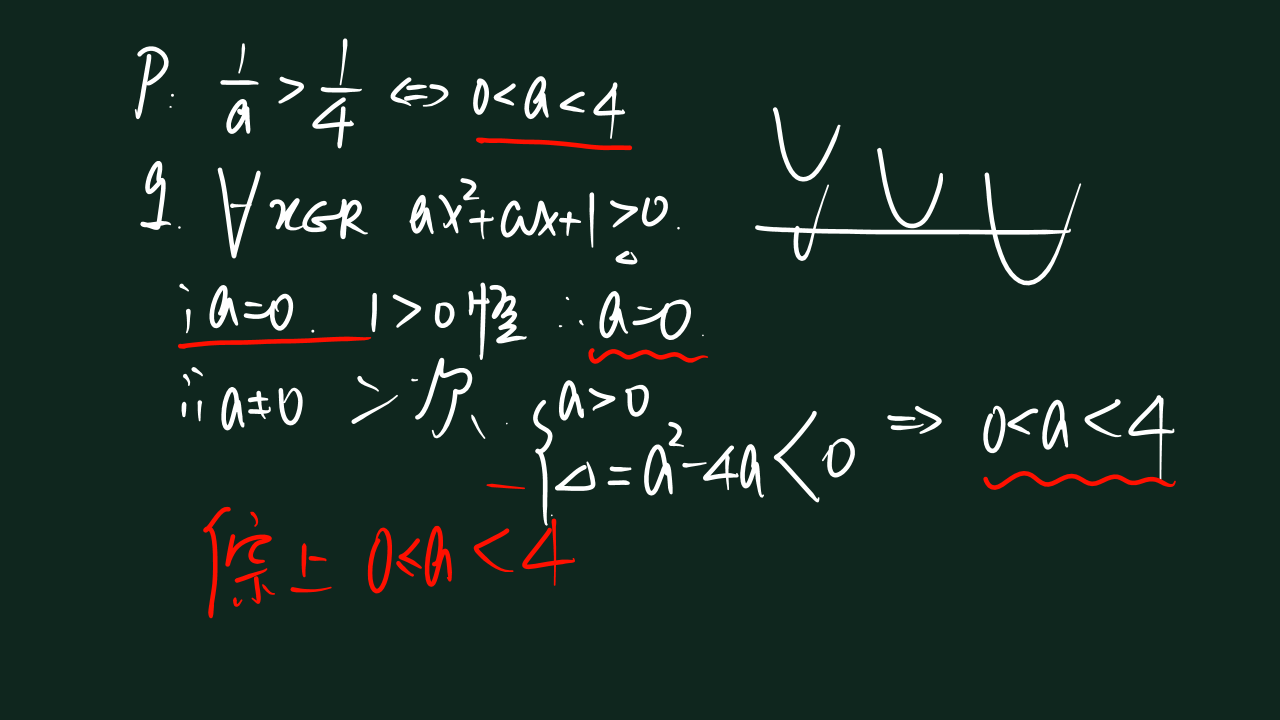 P: 1/a > 1/4 ⇔ 0<a<4
q. ∀x∈R ax²+ax+1>0.
i a=0. 1>0 恒 ∴ a=0.
ii a≠0 二次 { a>0
Δ=a²-4a<0 ⇒ 0<a<4
综上 0≤a<4